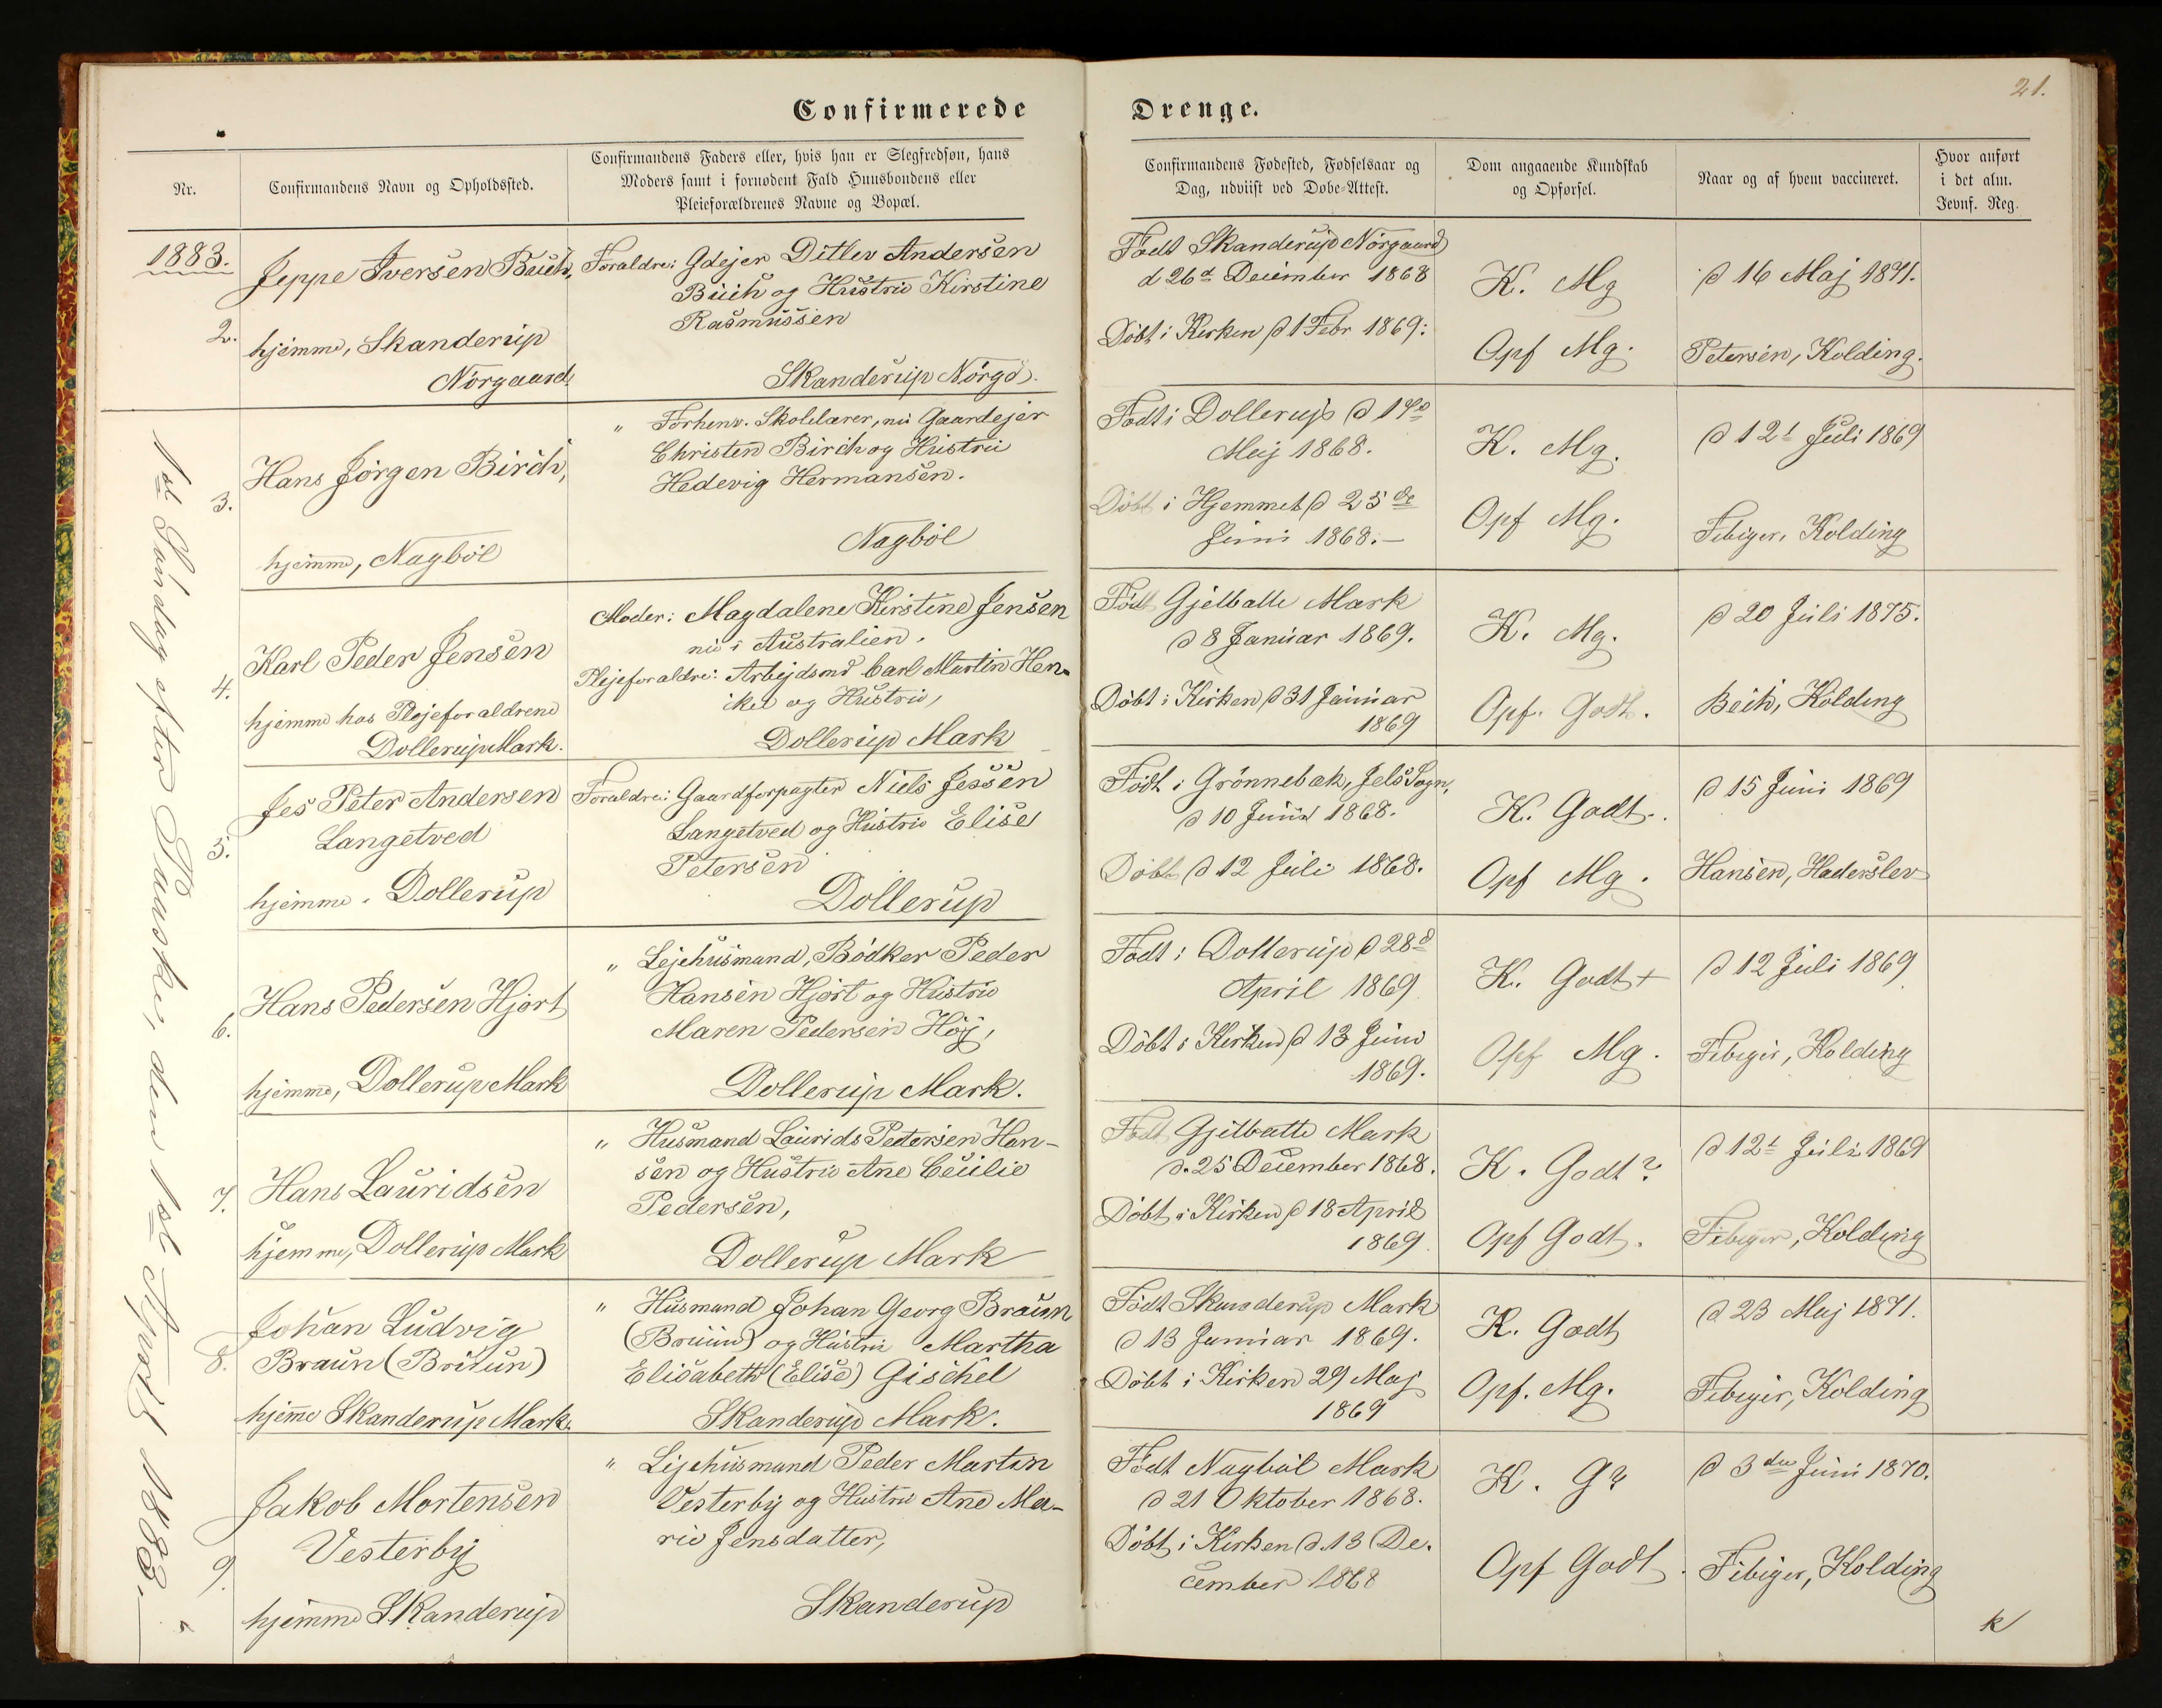 21.
Confirmerede Drenge.
Nr.
Confirmandens Navn og Opholdssted.
Confirmandens Faders eller, hvis han er Slegfredsøn, hans
Moders samt i fornødent Fald Huusbondens eller
Pleieforældrenes Navne og Bopæl.
Confirmandens Fødested, Fødselsaar og
Dag, udviist ved Døbe-Attest.
Dom angaaende Kundskab
og Opførsel.
Naar og af hvem vaccineret.
Hvor anført
i det alm.
Jevnf. Reg.
1883.
1st Søndag efter Paaske, den 1st April 1883.
2.
Jeppe Iversen Buch,
hjemme, Skanderup
Nørgaard.
Forældre: Gdejer Ditlev Andersen
Buch og Hustru Kirstine
Rasmussen
Skanderup Nørgd.
Født Skanderup Nørgaard
d 26d December 1868
Døbt i Kirken d 1 Febr 1869:
K. Mg
Opf Mg.
d 16 Maj 1871.
Petersen, Kolding.
3.
Hans Jørgen Birch,
hjemme, Nagbøl
" Forhenv. Skolelærer, nu Gaardejer
Christen Birch og Hustru
Hedevig Hermansen.
Nagbøl
Født i Dollerup d 14d
Maj 1868.
Døbt i Hjemmet d 25de
Juni 1868.—
K. Mg.
Opf Mg.
d 12t Juli 1869
Fibiger, Kolding
4.
Karl Peder Jensen
hjemme hos Plejeforældrene
Dollerup Mark.
Moder: Magdalene Kirstine Jensen
nu i Australien.
Plejeforældre: Arbejdsmd Carl Martin Hen-
ikel og Hustru,
Dollerup Mark
Født Gjelballe Mark
d 8 Januar 1869.
Døbt i Kirken d 31 Januar
1869
K. Mg.
Opf. Godt.
d 20 Juli 1875.
Bech, Kolding
5.
Jes Peter Andersen
Langetved
hjemme. Dollerup
Forældre: Gaardforpagter Niels Jessen
Langetved og Hustru Elise
Petersen
Dollerup
Født i Grønnebæk, Jels Sogn,
d 10 Juni 1868.
Døbt d 12 Juli 1868.
K. Godt.
Opf Mg.
d 15 Juni 1869
Hansen, Haderslev
6.
Hans Pedersen Hjort
hjemme, Dollerup Mark
" Lejehusmand, Bødker Peder
Hansen Hjort og Hustru
Maren Pedersen Høj,
Dollerup Mark.
Født i Dollerup d 28d
April 1869
Døbt i Kirken d 13 Juni
1869.
K. Godt +
Opf Mg.
d 12 Juli 1869
Fibiger, Kolding
7.
Hans Lauridsen
hjemme, Dollerup Mark
" Husmand Laurids Pedersen Han-
sen og Hustru Ane Cecilie
Pedersen,
Dollerup Mark
Født Gjelballe Mark
d. 25 December 1868.
Døbt i Kirken d 18 April
1869
K. Godt?
Opf Godt.
d 12t Juli 1869
Fibiger, Kolding
8.
Johan Ludvig
Braun (Bruun)
hjemme Skanderup Mark.
" Husmand Johan Georg Braun
(Bruun) og Hustru Martha
Elisabeth (Elise) Gischel
Skanderup Mark.
Født Skanderup Mark
d 13 Januar 1869.
Døbt i Kirken 29 Maj
1869
K. Godt
Opf. Mg.
d 23 Maj 1871.
Fibiger, Kolding
9.
Jakob Mortensen
Vesterby
hjemme Skanderup
" Lejehusmand Peder Martin
Vesterby og Hustru Ane Ma-
rie Jensdatter,
Skanderup
Født Nagbøl Mark
d 21 Oktober 1868.
Døbt i Kirken d. 13 De-
cember 1868
K. G?
Opf Godt.
d 3die Juni 1870.
Fibiger, Kolding